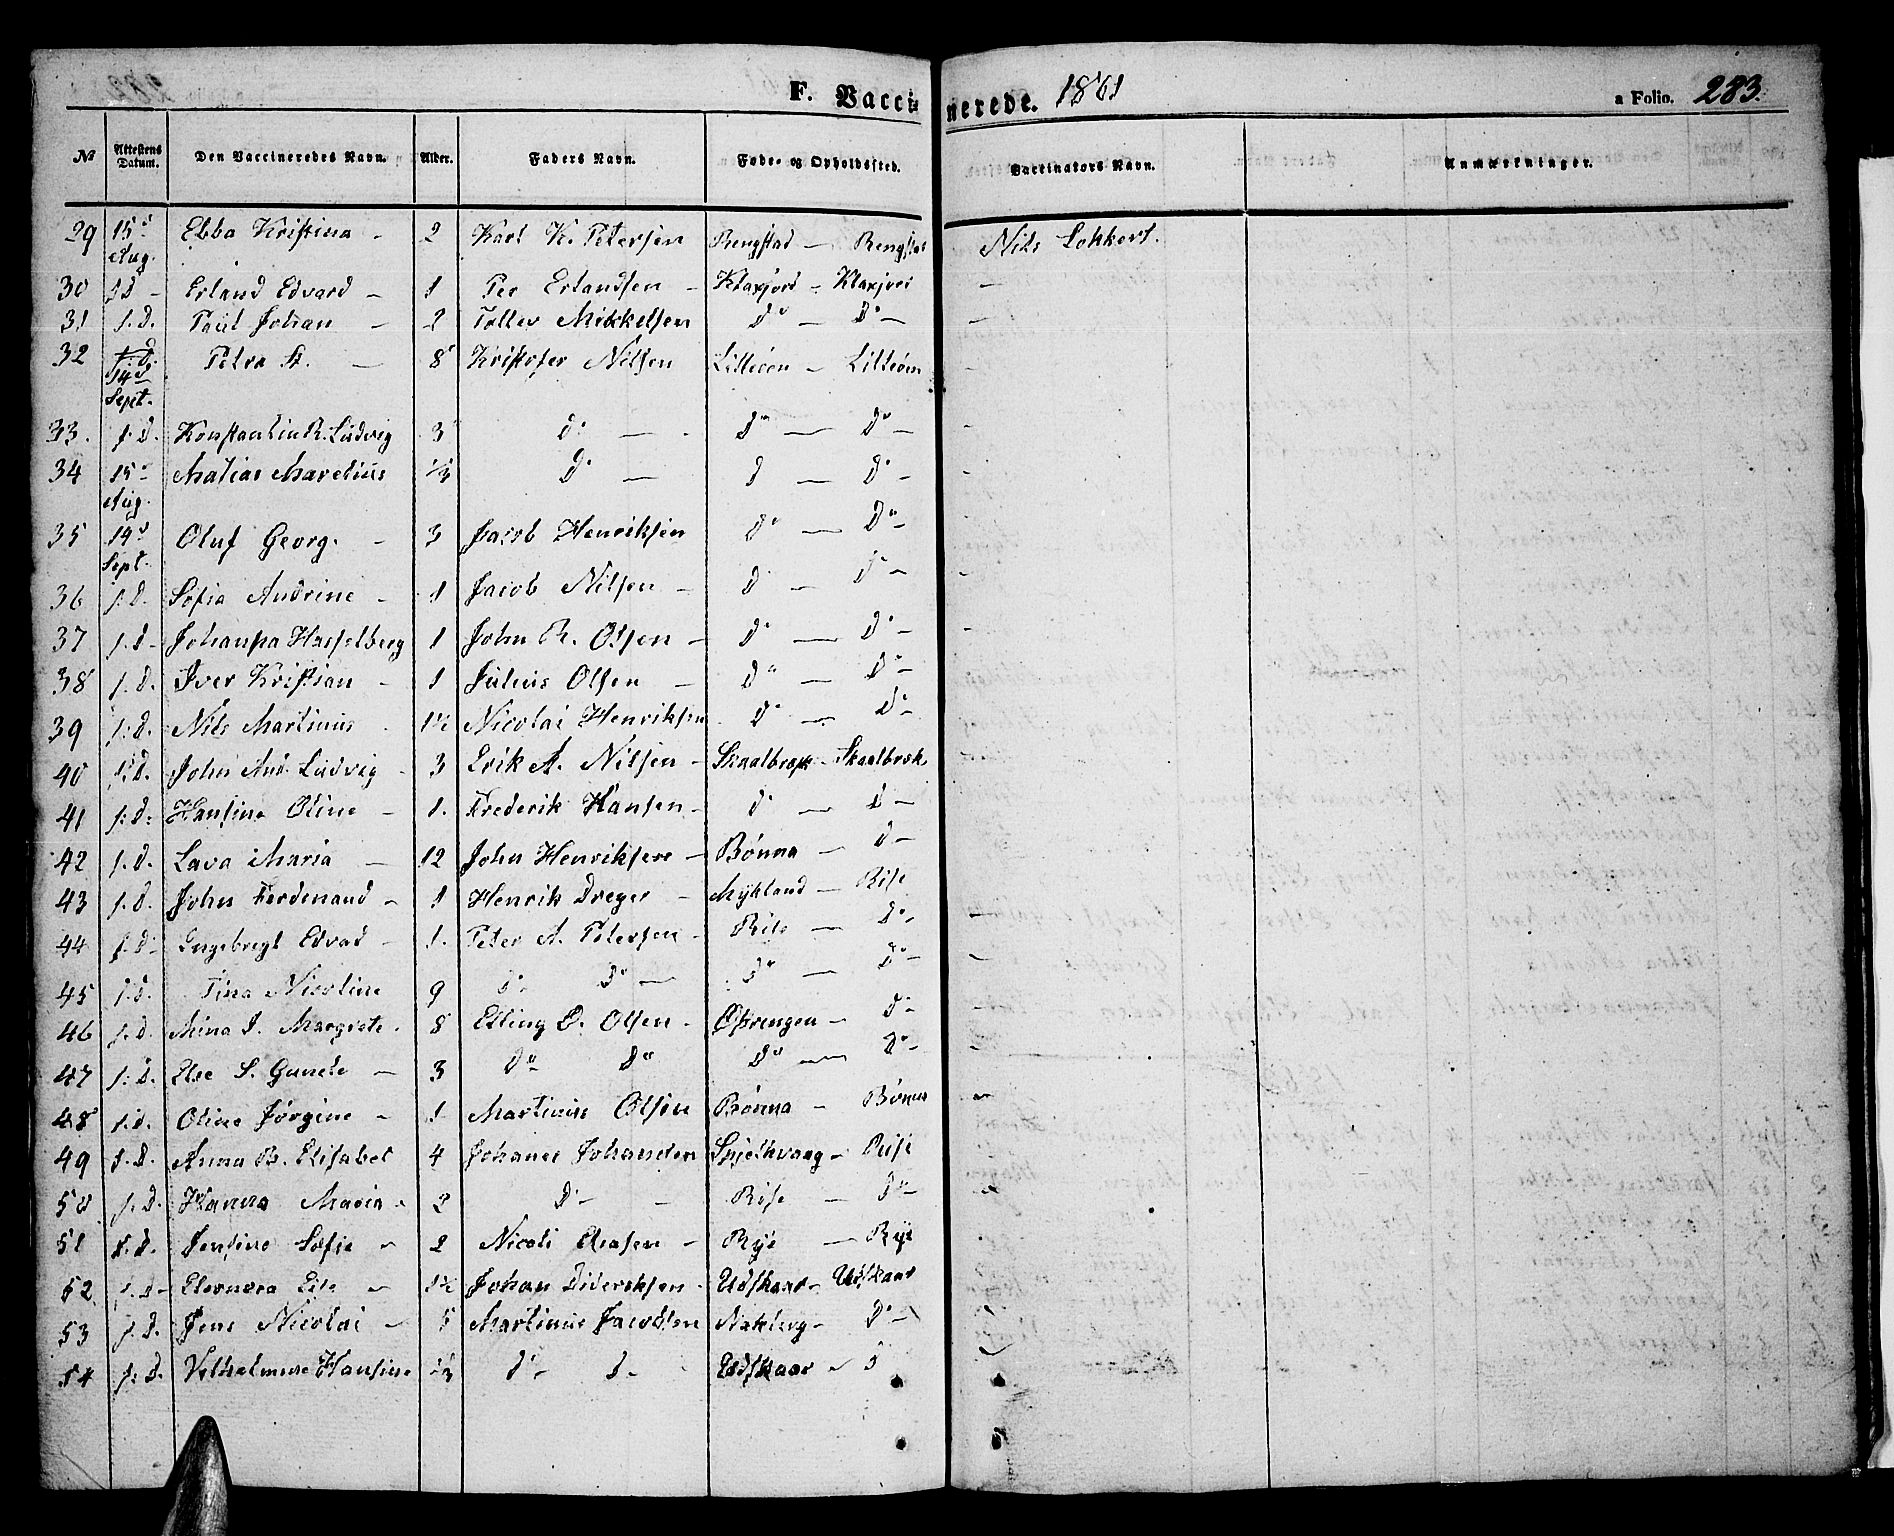 F. Vaccinerede. 1861 a Folio. 283.
№ Attestens Datum. Den Vaccineredes Navn. Alder. Faders Navn. Føde- og Opholdssted. Vaccinators Navn. Anmærkninger.
29 15d Aug. Ebba Kristina - 2 Karl K. Petersen Rengstad - Rengstad Nils Lokkert.
30 s.D - Erland Edvard - 1 Per Erlandsen - Klaxjord - Klaxjord -
31 s.D. Paul Johan - 2 Toller Mikkelsen Do - Do - -
32 s.D. 14d Sept. Petra A. - 8 Kristofer Nilsen Litteøen - Litteøen -
33. s.D. Konstantin R. Ludvig 3 Do - Do - Do - -
34 15d Aug. Matias Maretius 1/3 Do - D - Do - -
35 14d Sept. Oluf Georg. - 3 Jacob Henriksen Do - Do -
36 s.D. Sofia Andrine - 1 Jacob Nilsen - D - Do - -
37 s.D - Johanna Hasselberg 1 John R. Olsen - Do - Do - -
38 s.D. Iver Kristian - 1 Julius Olsen - Do - Do -
39 s.D. Nils Martinus 1½ Nicolai Henriksen Do - Do -
40 s.D. John And. Ludvig - 3 Erik A. Nilsen - Skaalbrok - Skaalbrok -
41 s.D: Hansine Oline - 1. Frederik Hansen - Do - D -
42 s.D. Lava Maria - 12 John Henriksen - Bønna - D -
43 s.D. John Ferdenand - 1 Henrik Dreyer - Mykland - Rise
44 s.D - Ingebregt Edvad - 1. Peter A. Petersen - Rise - Do - -
45 s.D. Tina Nicoline 9 Do Do - Do - Do - -
46 s.D. Mina J. Margrete. 8 Elling O. Olsen - Øksengen - Do -
47 s.D. Else S. Gunele - 3 Do Do Do - Do - -
48 s.D. Oline Jørgine - 1 Martinus Olsen Bønna - Bønna -
49 s.D. Anna B. Elisabet 4 Johanes Johansen - Rise -
50 s.D. Hanna Maria - 2 Do - - Rise - Do - -
51 s.D. Jensine Sofie - 2 Nicoli Eliasen - Rise - Rise
52 s.D - Eleonora Elise - 1½ Johan Dideriksen - Udskaar - Udskaar
53 s.D. Jens Nicolai - 5 Martinus Jacobsen - Do -
54 s.D. Vilhelmine Hansine 1/3 Do - D - Udskaar - D